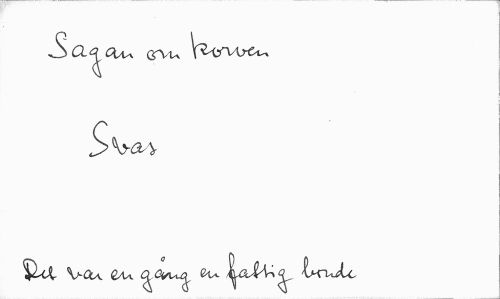 Sagan om korven
Svas
Det var en gång en fattig bonde